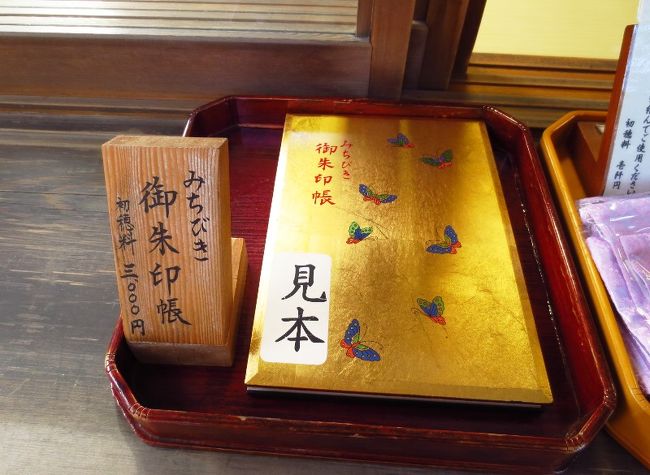 みちびき
御朱印帳
初穂料 三〇〇〇円
みちびき
御朱印帳
見本
んでご使用ください
初穂料 壱仟円